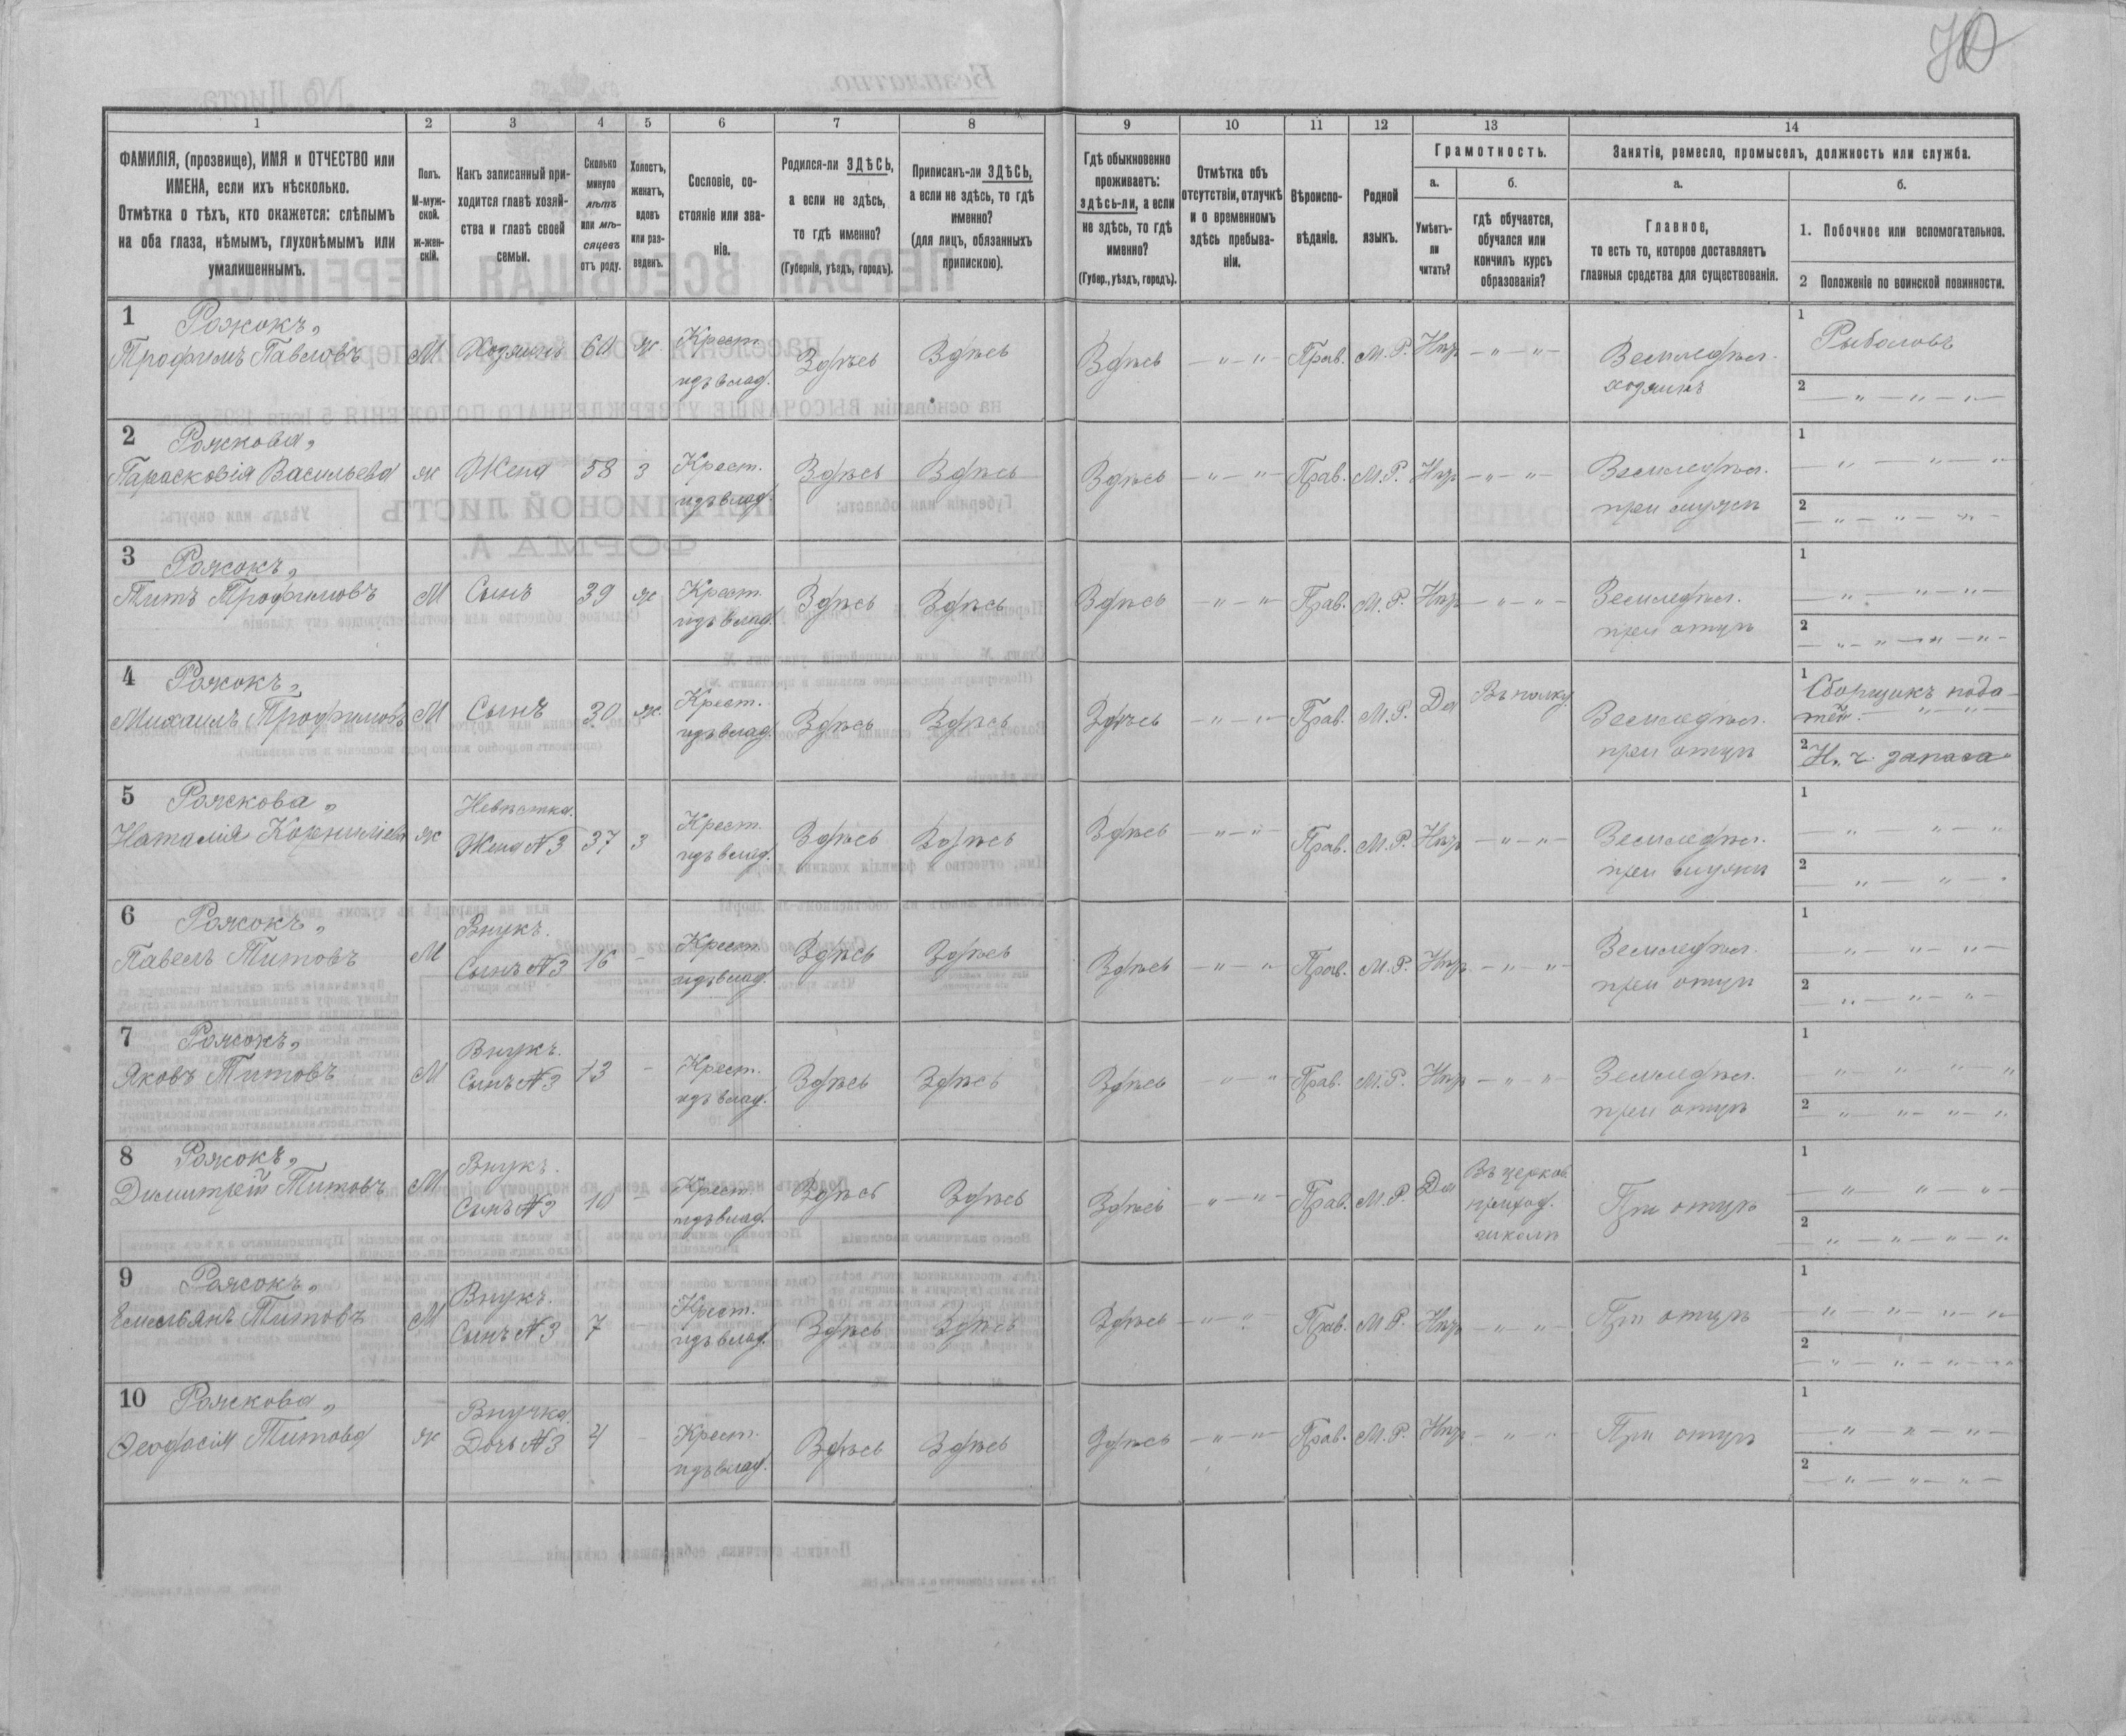 70
1 2 3 4 5 6 7 8 9 10 11 12 13 14
ФАМИЛІЯ, (прозвище), ИМЯ и ОТЧЕСТВО или
ИМЕНА, если ихъ нѣсколько.
Отмѣтка о тѣхъ, кто окажется: слѣпымъ
на оба глаза, нѣмымъ, глухонѣмымъ или
умалишеннымъ.
Полъ.
М-муж-
ской.
ж-жен-
скій.
Какъ записанный при-
ходится главѣ хозяй-
ства и главѣ своей
семьи.
Сколько
минуло
лѣтъ
или мѣ-
сяцевъ
отъ роду.
Холостъ,
женатъ,
вдовъ
или раз-
веденъ.
Сословіе, со-
стояніе или зва-
ніе.
Родился-ли ЗДѢСЬ,
а если не здѣсь,
то гдѣ именно?
(Губернія, уѣздъ, городъ).
Приписанъ-ли ЗДѢСЬ,
а если не здѣсь, то гдѣ
именно?
(для лицъ, обязанныхъ
припискою).
Гдѣ обыкновенно
проживаетъ:
здѣсь-ли, а если
не здѣсь, то гдѣ
именно?
(Губер., уѣздъ, городъ).
Отмѣтка объ
отсутствіи, отлучкѣ
и о временномъ
здѣсь пребыва-
ніи.
Вѣроиспо-
вѣданіе.
Родной
языкъ.
Грамотность.
а.
Умѣетъ-
ли
читать?
б.
гдѣ обучается,
обучался или
кончилъ курсъ
образованія?
Занятіе, ремесло, промыселъ, должность или служба.
а.
Главное,
то есть то, которое доставляетъ
главныя средства для существованія.
б.
1. Побочное или вспомогательное.
2 Положеніе по воинской повинности.
1 Рожокъ,
Трофимъ Павловъ М Хозяинъ 60 ж Крест.
изъ влад. Здѣсь Здѣсь Здѣсь — " — " Прав. М.Р. Нѣр — " — " — Земледѣл.
хозяинъ
1 Рыболовъ
2 — " — " — " —
2 Рожкова,
Парасковія Васильева ж Жена 58 з Крест.
изъ влад. Здѣсь Здѣсь Здѣсь — " — " — Прав. М.Р. Нѣр — " — " Земледѣл.
при мужѣ
1 — " — " — "
2 — " — " — " —
3 Рожокъ,
Титъ Трофимовъ М Сынъ 39 ж Крест.
изъ влад. Здѣсь Здѣсь Здѣсь — " — " — Прав. М.Р. Нѣр — " — " — Земледѣл.
при отцѣ
1 — " — " — " —
2 — " — " — " — " —
4 Рожокъ,
Михаилъ Трофимовъ М Сынъ 30 ж. Крест.
изъ влад. Здѣсь Здѣсь Здѣсь — " — " — Прав. М.Р. Да Въ полку Земледѣл.
при отцѣ
1 Сборщикъ пода-
тей. — " — " —
2 Н. ч. запаса
5 Рожкова,
Наталія Корниліева ж Невѣстка.
Жена №3 37 з Крест.
изъ влад. Здѣсь Здѣсь Здѣсь — " — " — Прав. М.Р. Нѣр — " — " — Земледѣл.
при мужѣ
1 — " — " — "
2 — " — " — "
6 Рожокъ,
Павелъ Титовъ М Внукъ.
Сынъ №3 16 - Крест.
изъ влад. Здѣсь Здѣсь Здѣсь — " — " Прав. М.Р. Нѣр — " — " — Земледѣл.
при отцѣ
1 — " — " — " —
2 — " — " — " —
7 Рожокъ,
Яковъ Титовъ М Внукъ.
Сынъ №3 13 - Крест.
изъ влад. Здѣсь Здѣсь Здѣсь " — " Прав. М.Р. Нѣр — " — " Земледѣл.
при отцѣ
1 — " — " — " — "
2 — " — " — " — "
8 Рожокъ,
Димитрій Титовъ М Внукъ.
Сынъ №3 10 - Крест.
изъ влад. Здѣсь Здѣсь Здѣсь " — " — Прав. М.Р. Да Въ церков.
приход.
школѣ При отцѣ
1 — " — " — " —
2 — " — " — " — "
9 Рожокъ,
Емельянъ Титовъ М Внукъ.
Сынъ №3 7 - Крест.
изъ влад. Здѣсь Здѣсь Здѣсь — " — " Прав. М.Р. Нѣр — " — " — При отцѣ
1 — " — " — " — "
2 — " — " — " — "
10 Рожкова,
Ѳеодосія Титова ж Внучка.
Дочь №3 4 - Крест.
изъ влад. Здѣсь Здѣсь Здѣсь — " — " — Прав. М.Р. Нѣр — " — " При отцѣ
1 — " — " — " —
2 — " — " — " —